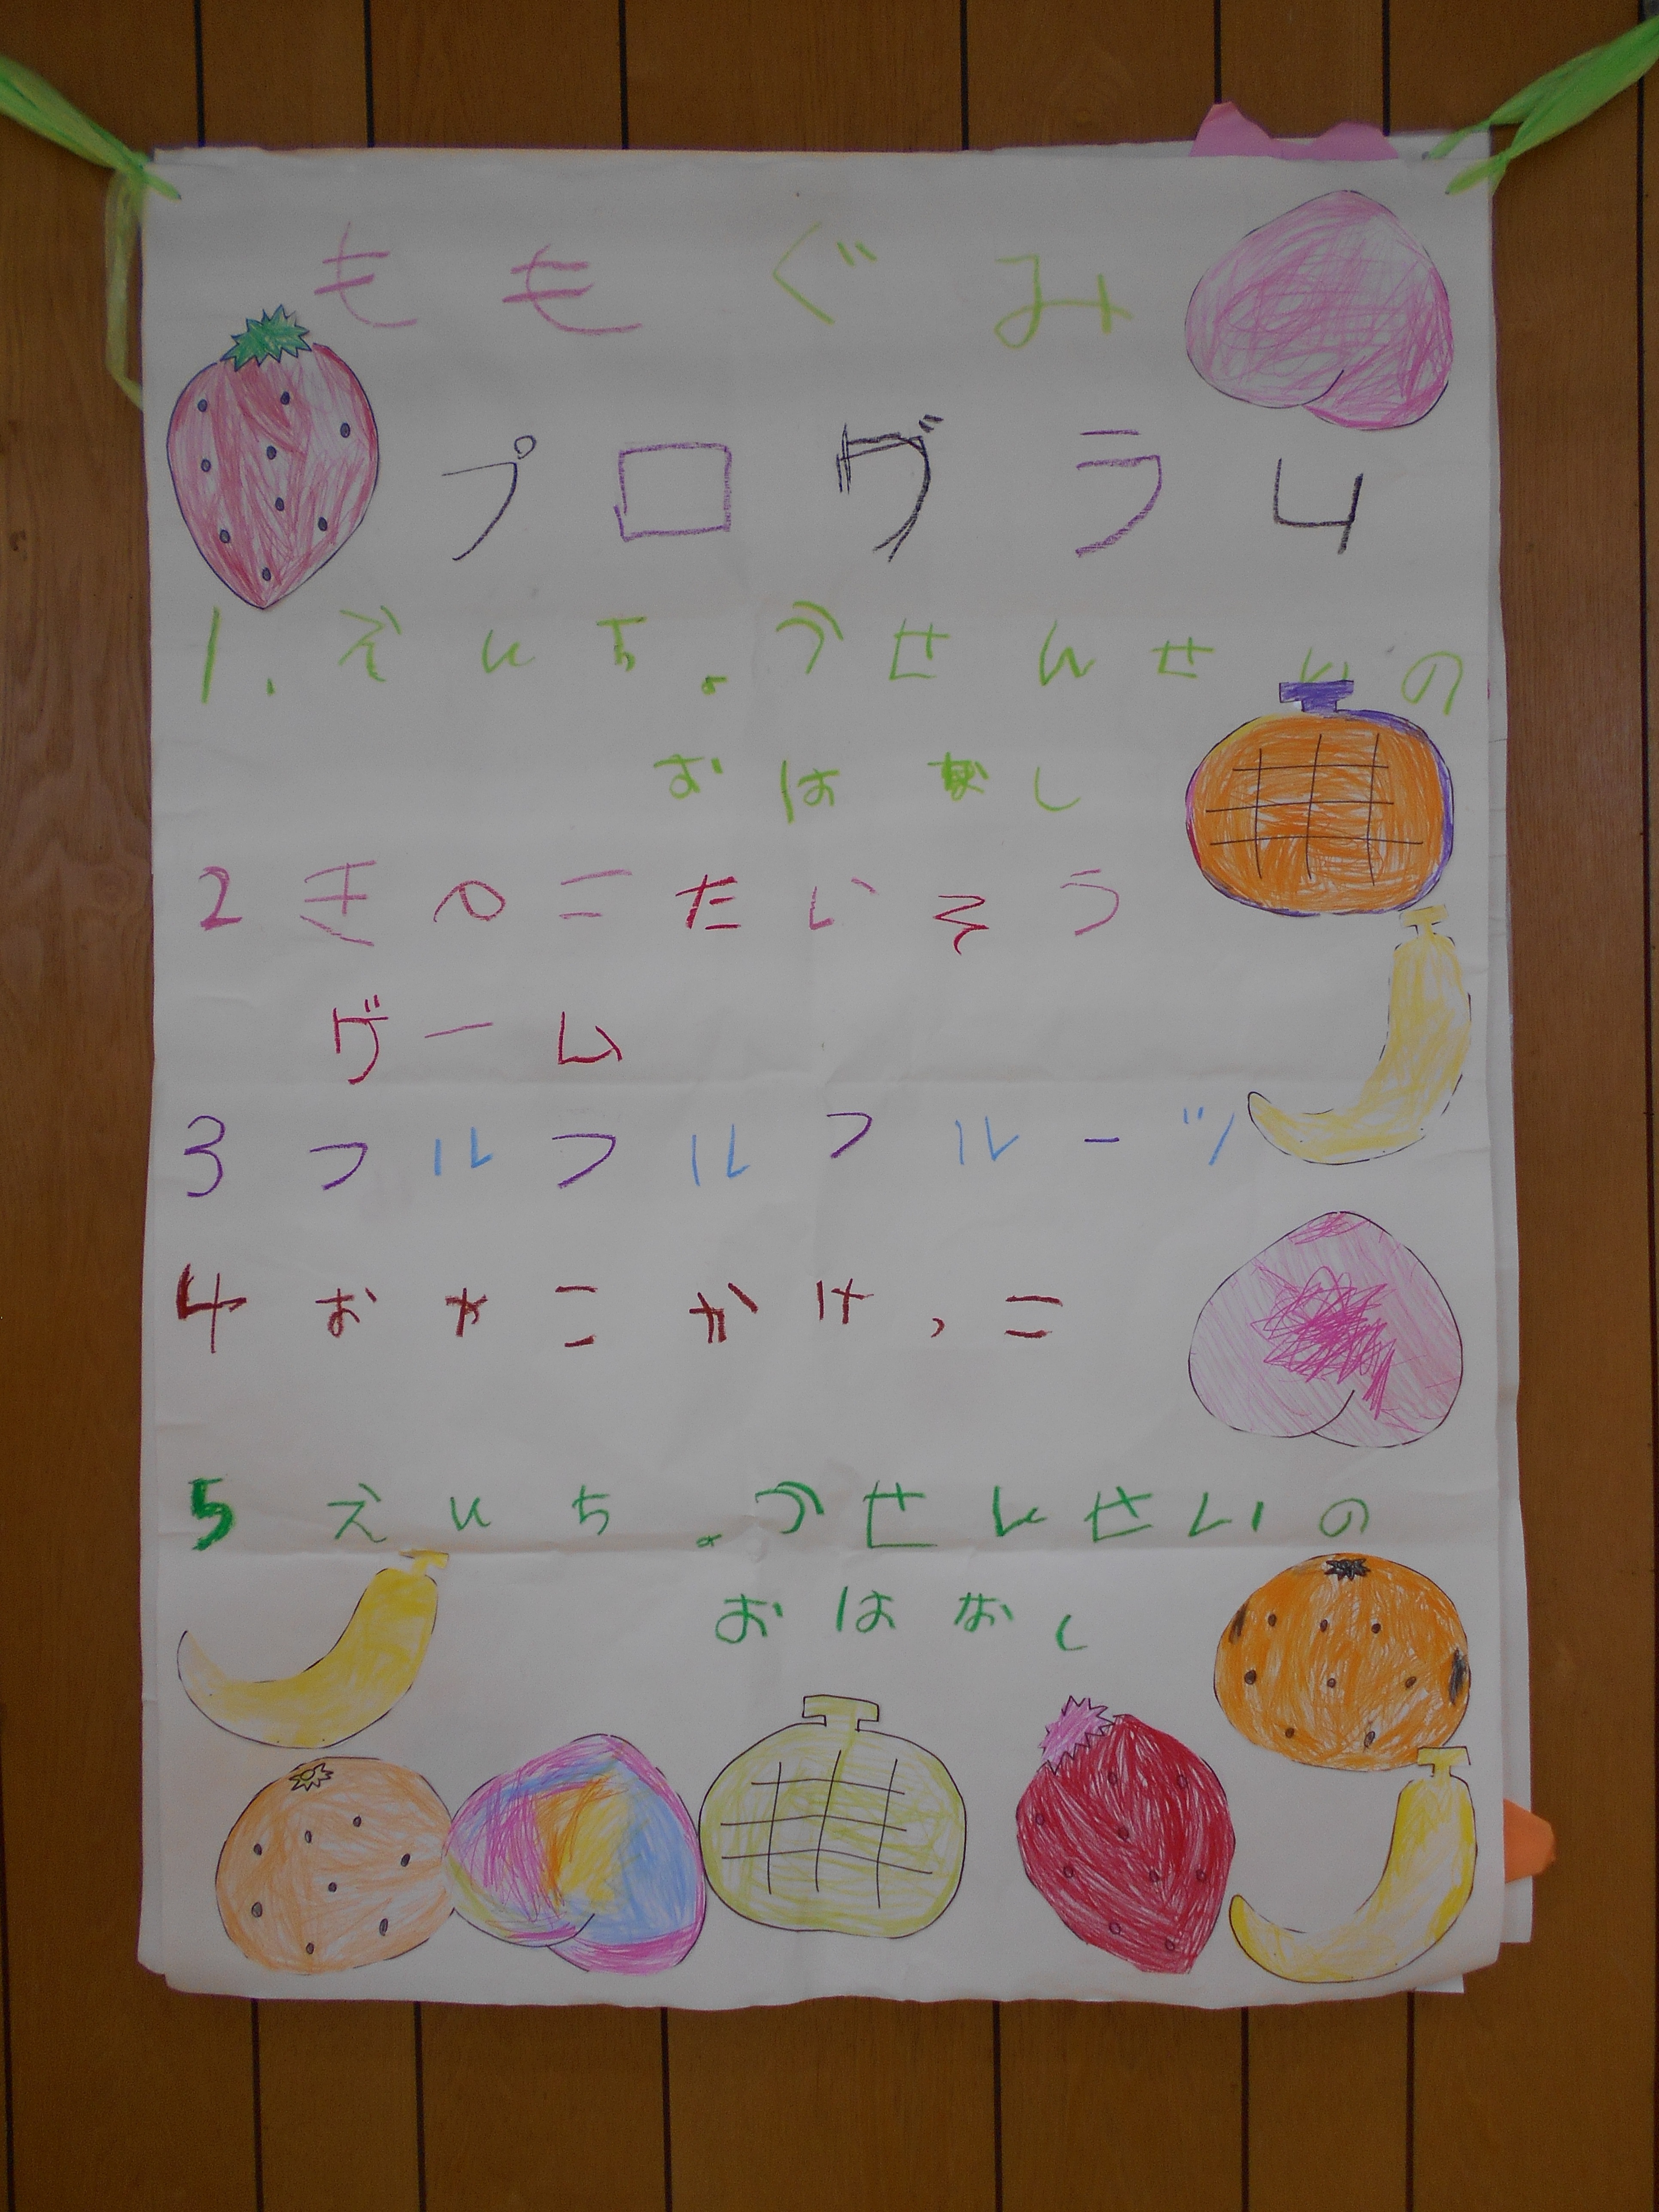 ももぐみ
プログラム
1.えんちょうせんせいの
おはなし
2きのこたいそう
ゲーム
3フルフルフルーツ
4おやこかけっこ
5えんちょうせんせいの
おはなし